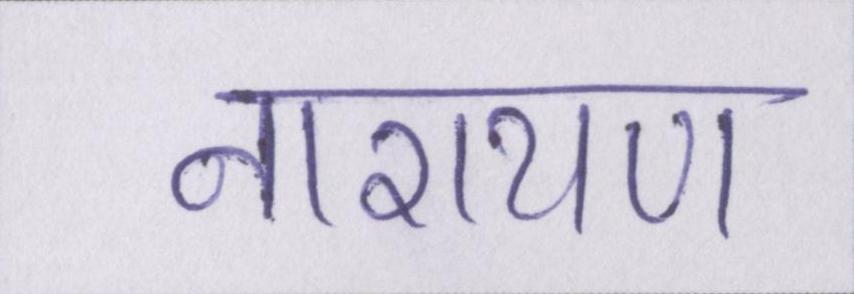 नारायण